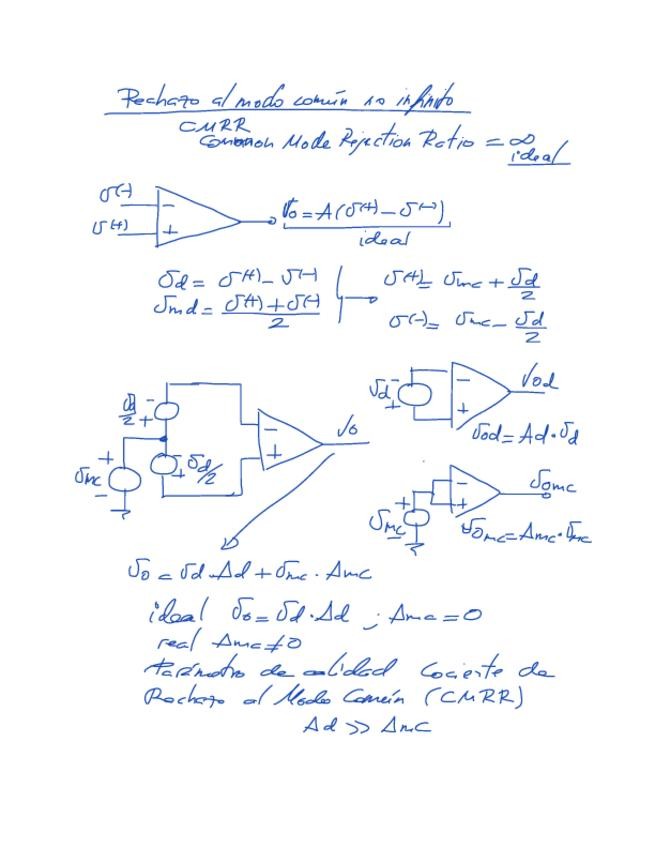 Rechazo al modo común no infinito
CMRR
Common Mode Rejection Ratio = ∞
ideal
v(-)
v(+)
-
+
Vo = A(v(+) - v(-))
ideal
vd = v(+) - v(-)
vmd = v(+) + v(-) / 2
v(+) = vmc + vd/2
v(-) = vmc - vd/2
vd/2 - +
vmc + -
+ vd/2
- +
Vo
vd - +
- +
Vod
vod = Ad·vd
vmc + -
- +
vomc
vomc = Amc·vmc
vo = vd·Ad + vmc·Amc
ideal vo = vd·Ad ; Amc = 0
real Amc ≠ 0
Parámetro de calidad Cociente de
Rechazo al Modo Común (CMRR)
Ad >> Amc